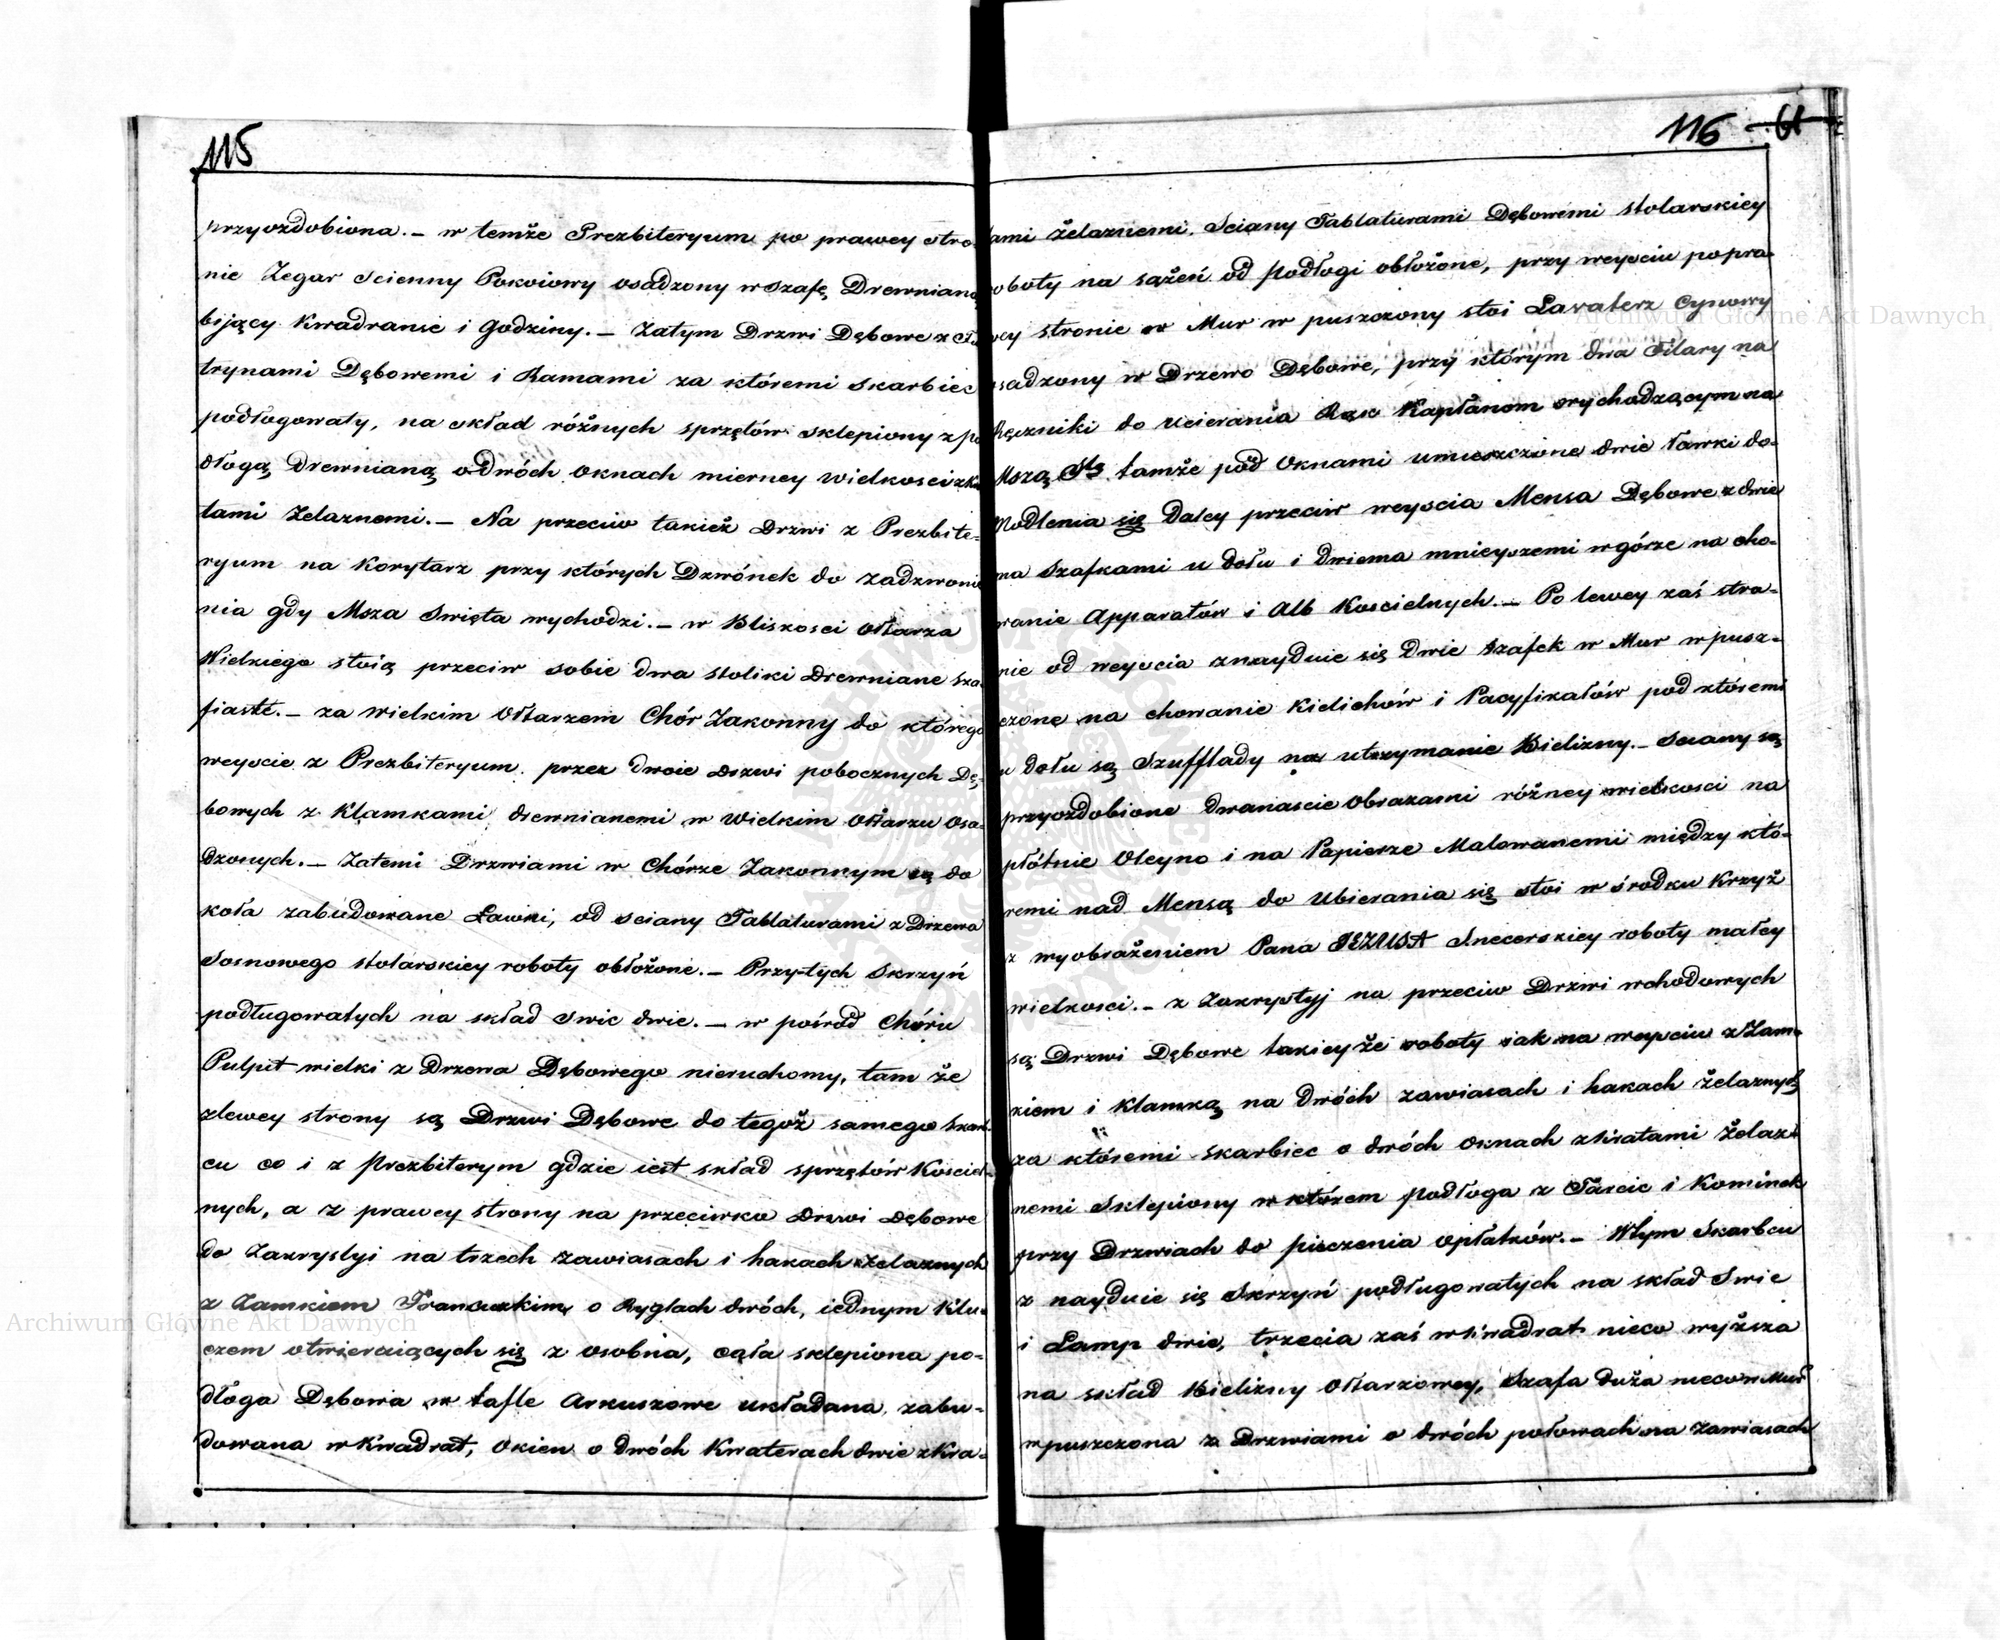 115
przyozdobiona.– w temże Prezbiteryum po prawey stro-
nie Zegar Scienny Pokoiowy osadzony w Szafę Drewnianą
bijący Kwadranse i Godziny.– Zatym Drzwi Dębowe z Fu
trynami Dębowemi i Ramami za któremi Skarbiec
podługowaty, na skład różnych sprzętów sklepiony z po
dłogą Drewnianą o dwóch Oknach mierney wielkosci z kra
tami Zelaznemi.– Na przeciw takież Drzwi z Prezbite-
ryum na Korytarz przy których Dzwónek do zadzwonie
nia gdy Msza Swięta wychodzi.– w Bliskosci Ołtarza
Wielkiego stoią przeciw sobie dwa stoliki Drewniane sza-
fiaste.– za wielkim Ołtarzem Chór Zakonny do którego
weyscie z Prezbiteryum przez dwoie drzwi pobocznych Dę-
bowych z Klamkami drewnianemi w Wielkim Ołtarzu Osa-
dzonych.– Zatemi Drzwiami w Chórze Zakonnym są do
koła zabudowane Ławki, od sciany Tablaturami z Drzewa
Sosnowego stolarskiey roboty obłożone.– Przy tych Skrzyń
podługowatych na skład Swic dwie.– w pośrod Chóru
Pulpit wielki z Drzewa Dębowego nieruchomy, tam że
zlewey strony są Drzwi Dębowe do tegoż samego Skarb-
cu co i z Prezbiterym gdzie iest skład sprzętów Kosciel-
nych, a z prawey strony na przeciwko drzwi dębowe
do Zakrystyi na trzech zawiasach i hakach żelaznych
z Zamkiem Francuzkim o Ryglach dwóch, iednym Klu-
czem otwieraiących się z osobna, cała sklepiona po-
dłoga Dębowa w tafle Arkuszowe układana, zabu-
dowana w Kwadrat, Okien o dwóch Kwaterach dwie z Kra-
116 61
tami żelaznemi. Sciany Tablaturami Dębowemi stolarskiey
roboty na sążeń od Podłogi obłożone, przy weysciu popra-
wey stronie w Mur w puszczony stoi Lavaterz Cynowy
osadzony w Drzewo Dębowe, przy którym dwa Filary na
Ręczniki do ucierania Rąk Kapłanom wychodzącym na
Mszą Stą tamże pod Oknami umieszczone dwie ławki do-
Modlenia się Daley przeciw weyscia Mensa Dębowe z dwie
ma Szafkami u dołu i dwiema mnieyszemi w górze na cho-
wanie Apparatów i Alb Koscielnych.– Po lewey zaś stro-
nie od weyscia znayduie się Dwie szafek w Mur w pusz-
czone na chowanie Kielichów i Pacyfikałów pod któremi
u dołu są Szufflady na utrzymanie Bielizny.– Sciany są
przyozdobione dwanascie Obrazami różney wielkosci na
płótnie Oleyno i na Papierze Malowanemi między któ-
remi nad Mensą do Ubierania się stoi w środku Krzyż
z wyobrażeniem Pana JEZUSA Snecerskiey roboty małey
wielkosci.– z Zakrystyj na przeciw Drzwi wchodowych
są Drzwi Dębowe takieyże roboty iak na weysciu z Zam-
kiem i Klamką na dwóch zawiasach i hakach żelaznych
za któremi skarbiec o dwóch oknach z kratami żelaz
nemi Sklepiony w którem Podłoga z Tarcic i Kominek
przy Drzwiach do pieczenia opłatków.– Wtym Skarbcu
z nayduie się Skrzyń podługowatych na skład Swic
i Lamp dwie, trzecia zaś w kwadrat nieco wyższa
na skład Bielizny Ołtarzowey, Szafa duża nieco w Mur
wpuszczona z Drzwiami o dwóch połowach na zawiasach
Archiwum Główne Akt Dawnych
Archiwum Główne Akt Dawnych